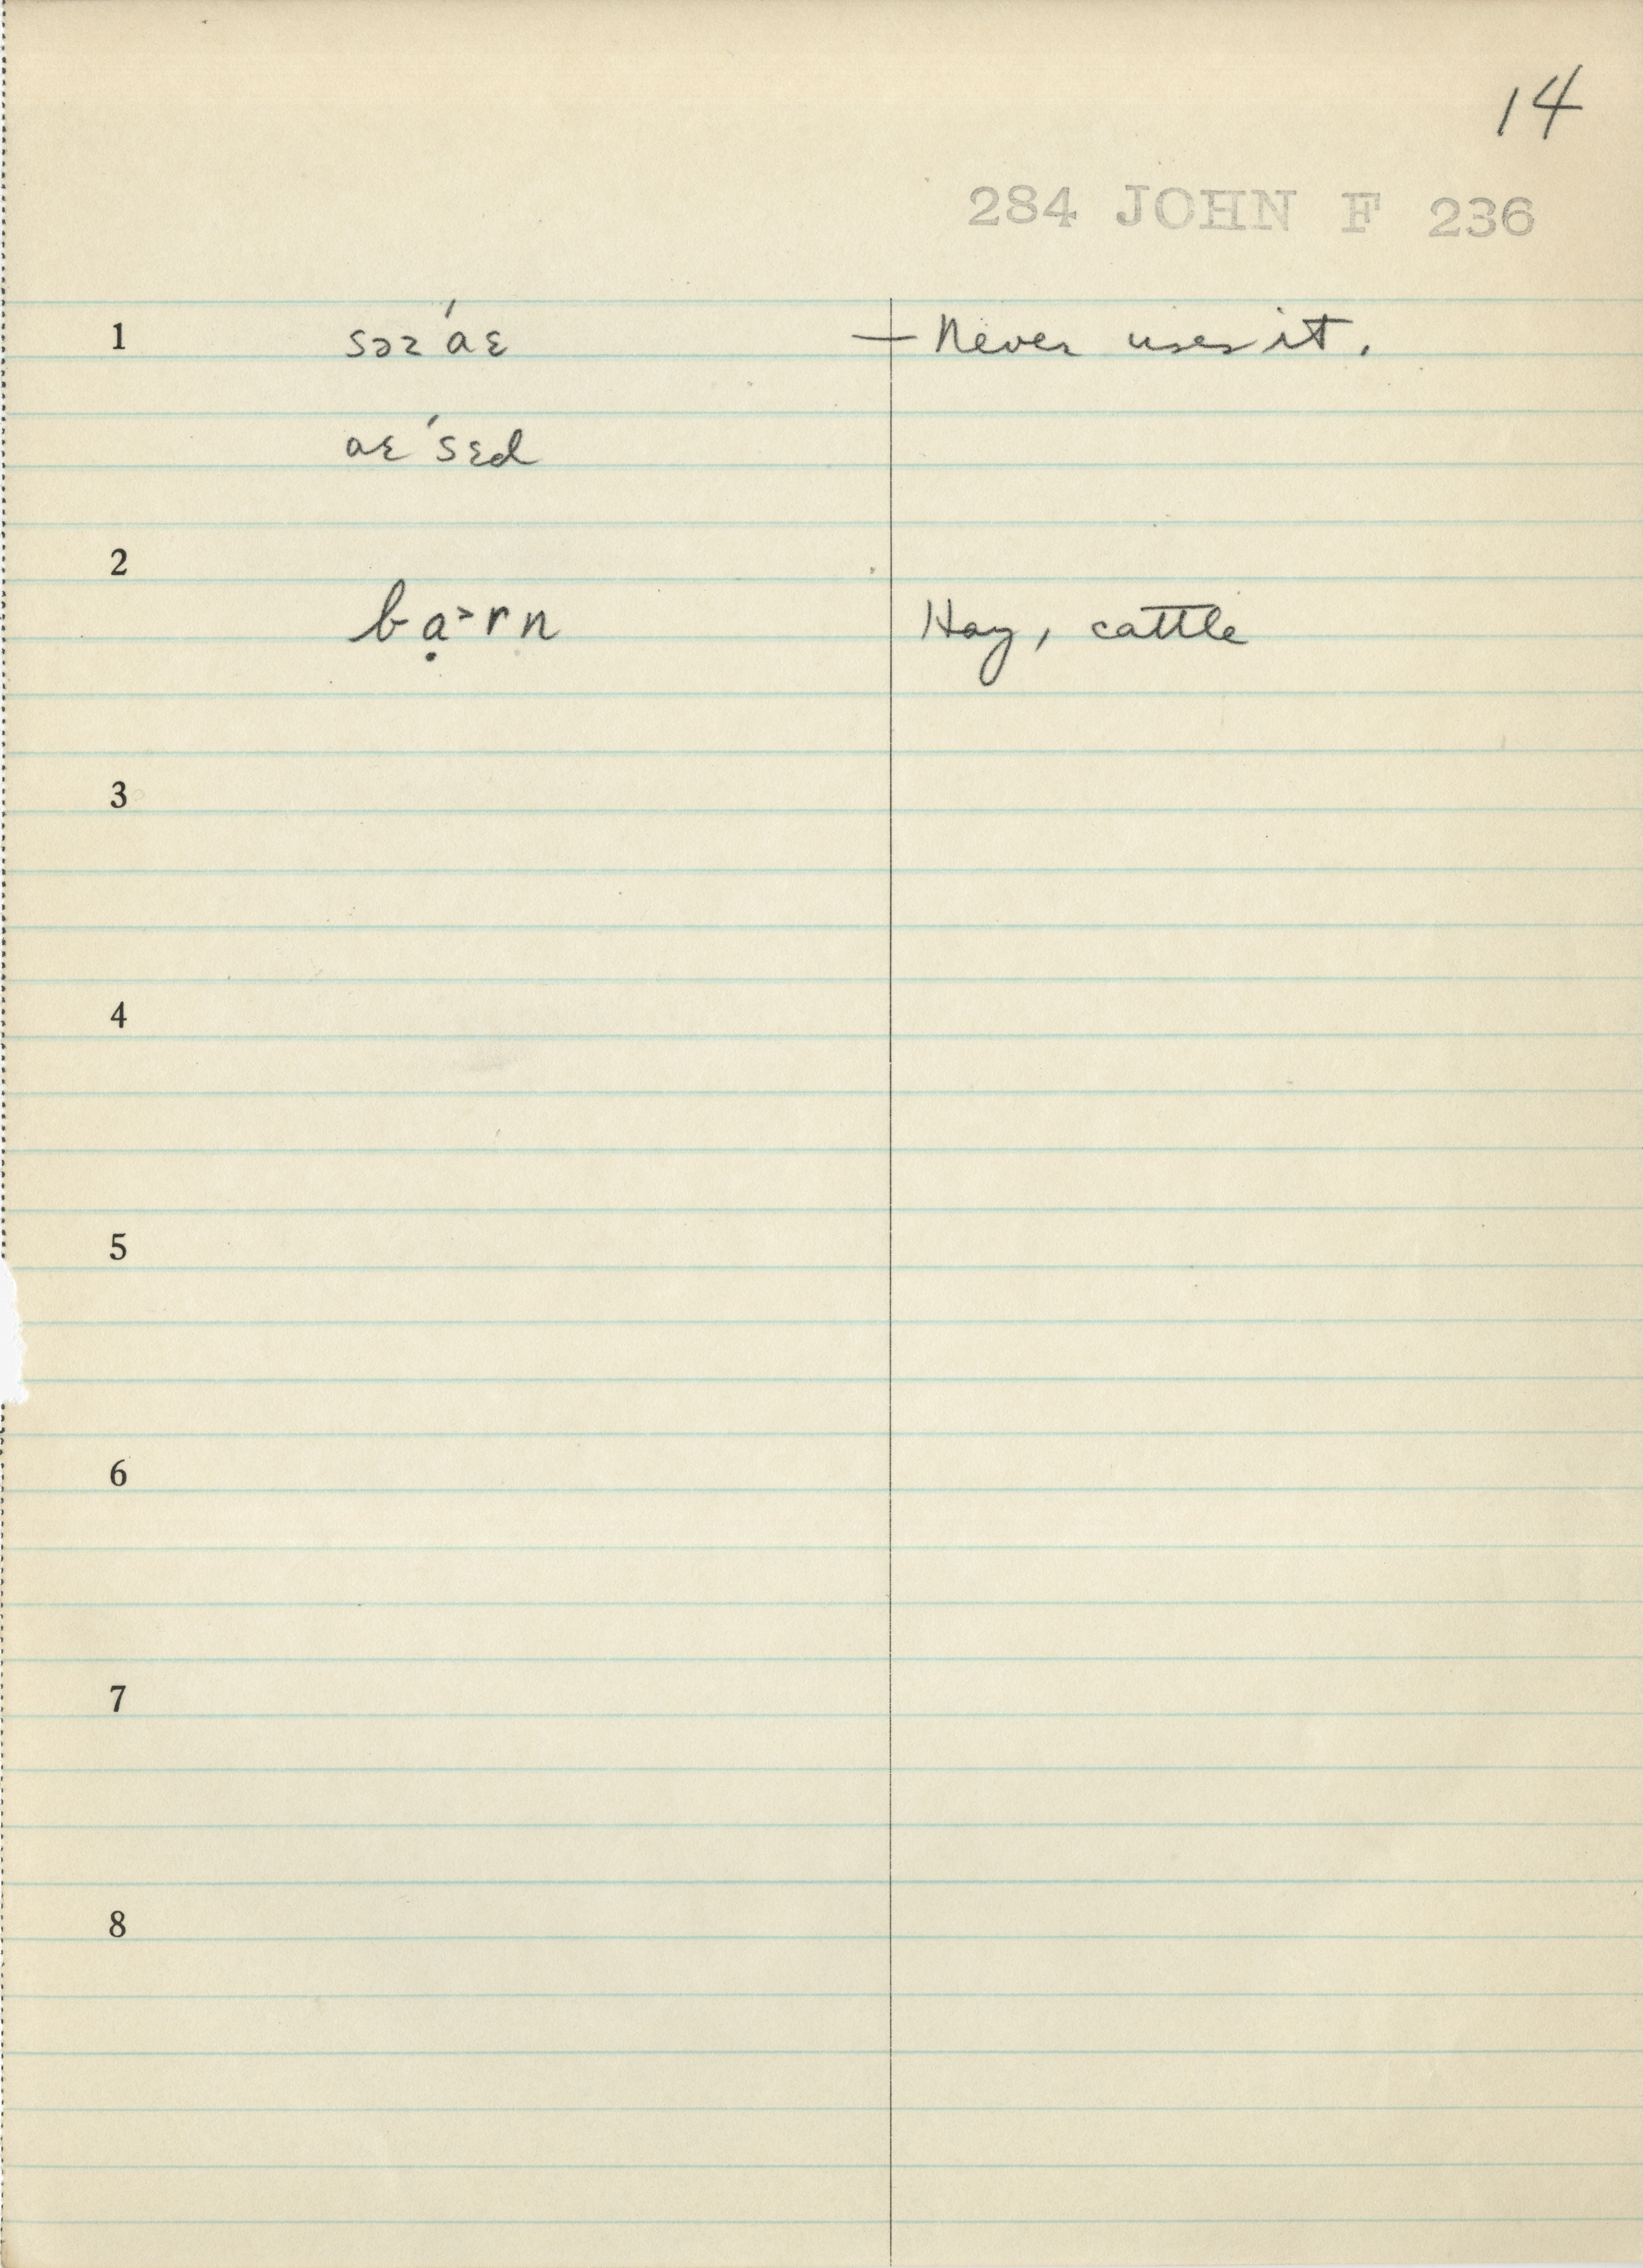 14
284 JOHN F 236
1 sɔz ́aɛ — Never uses it.
aɛ ́sɛd
2
bạ˃rn Hay, cattle
3
4
5
6
7
8